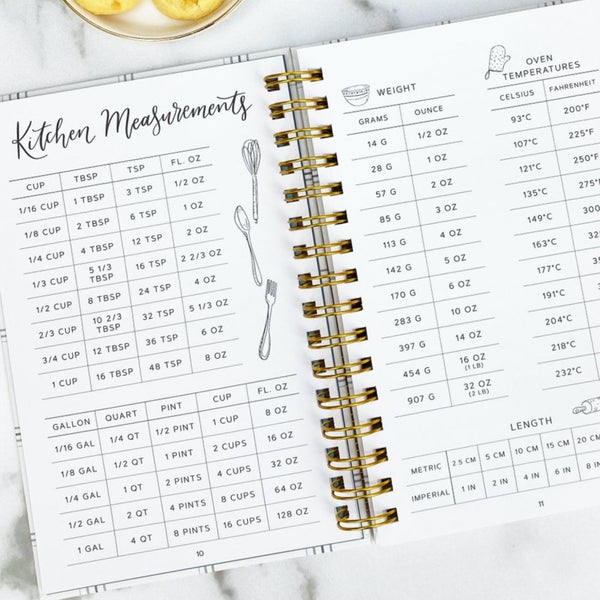 Kitchen Measurements
CUP TBSP TSP FL. OZ
1/16 CUP 1 TBSP 3 TSP 1/2 OZ
1/8 CUP 2 TBSP 6 TSP 1 OZ
1/4 CUP 4 TBSP 12 TSP 2 OZ
1/3 CUP 5 1/3 TBSP 16 TSP 2 2/3 OZ
1/2 CUP 8 TBSP 24 TSP 4 OZ
2/3 CUP 10 2/3 TBSP 32 TSP 5 1/3 OZ
3/4 CUP 12 TBSP 36 TSP 6 OZ
1 CUP 16 TBSP 48 TSP 8 OZ
GALLON QUART PINT CUP FL. OZ
1/16 GAL 1/4 QT 1/2 PINT 1 CUP 8 OZ
1/8 GAL 1/2 QT 1 PINT 2 CUPS 16 OZ
1/4 GAL 1 QT 2 PINTS 4 CUPS 32 OZ
1/2 GAL 2 QT 4 PINTS 8 CUPS 64 OZ
1 GAL 4 QT 8 PINTS 16 CUPS 128 OZ
10
WEIGHT
GRAMS OUNCE
14 G 1/2 OZ
28 G 1 OZ
57 G 2 OZ
85 G 3 OZ
113 G 4 OZ
142 G 5 OZ
170 G 6 OZ
283 G 10 OZ
397 G 14 OZ
454 G 16 OZ (1 LB)
907 G 32 OZ (2 LB)
OVEN
TEMPERATURES
CELSIUS FAHRENHEIT
93°C 200°F
107°C 225°F
121°C 250°F
135°C 275°
149°C 300
163°C
177°C
191°C
204°C
218°C
232°C
LENGTH
METRIC 2.5 CM 5 CM 10 CM 15 CM 20 CM
IMPERIAL 1 IN 2 IN 4 IN 6 IN 8 IN
11